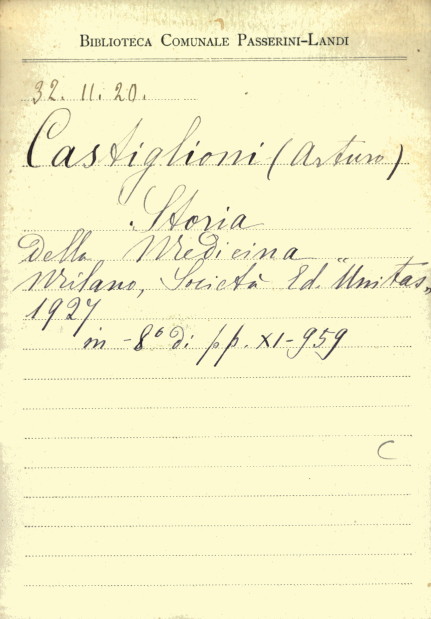 BIBLIOTECA COMUNALE PASSERINI-LANDI
32. 11. 20.
Castiglioni (Arturo)
Storia
della Medicina
Milano, Società Ed. "Unitas"
1927
in -8° di pp. XI-959
C